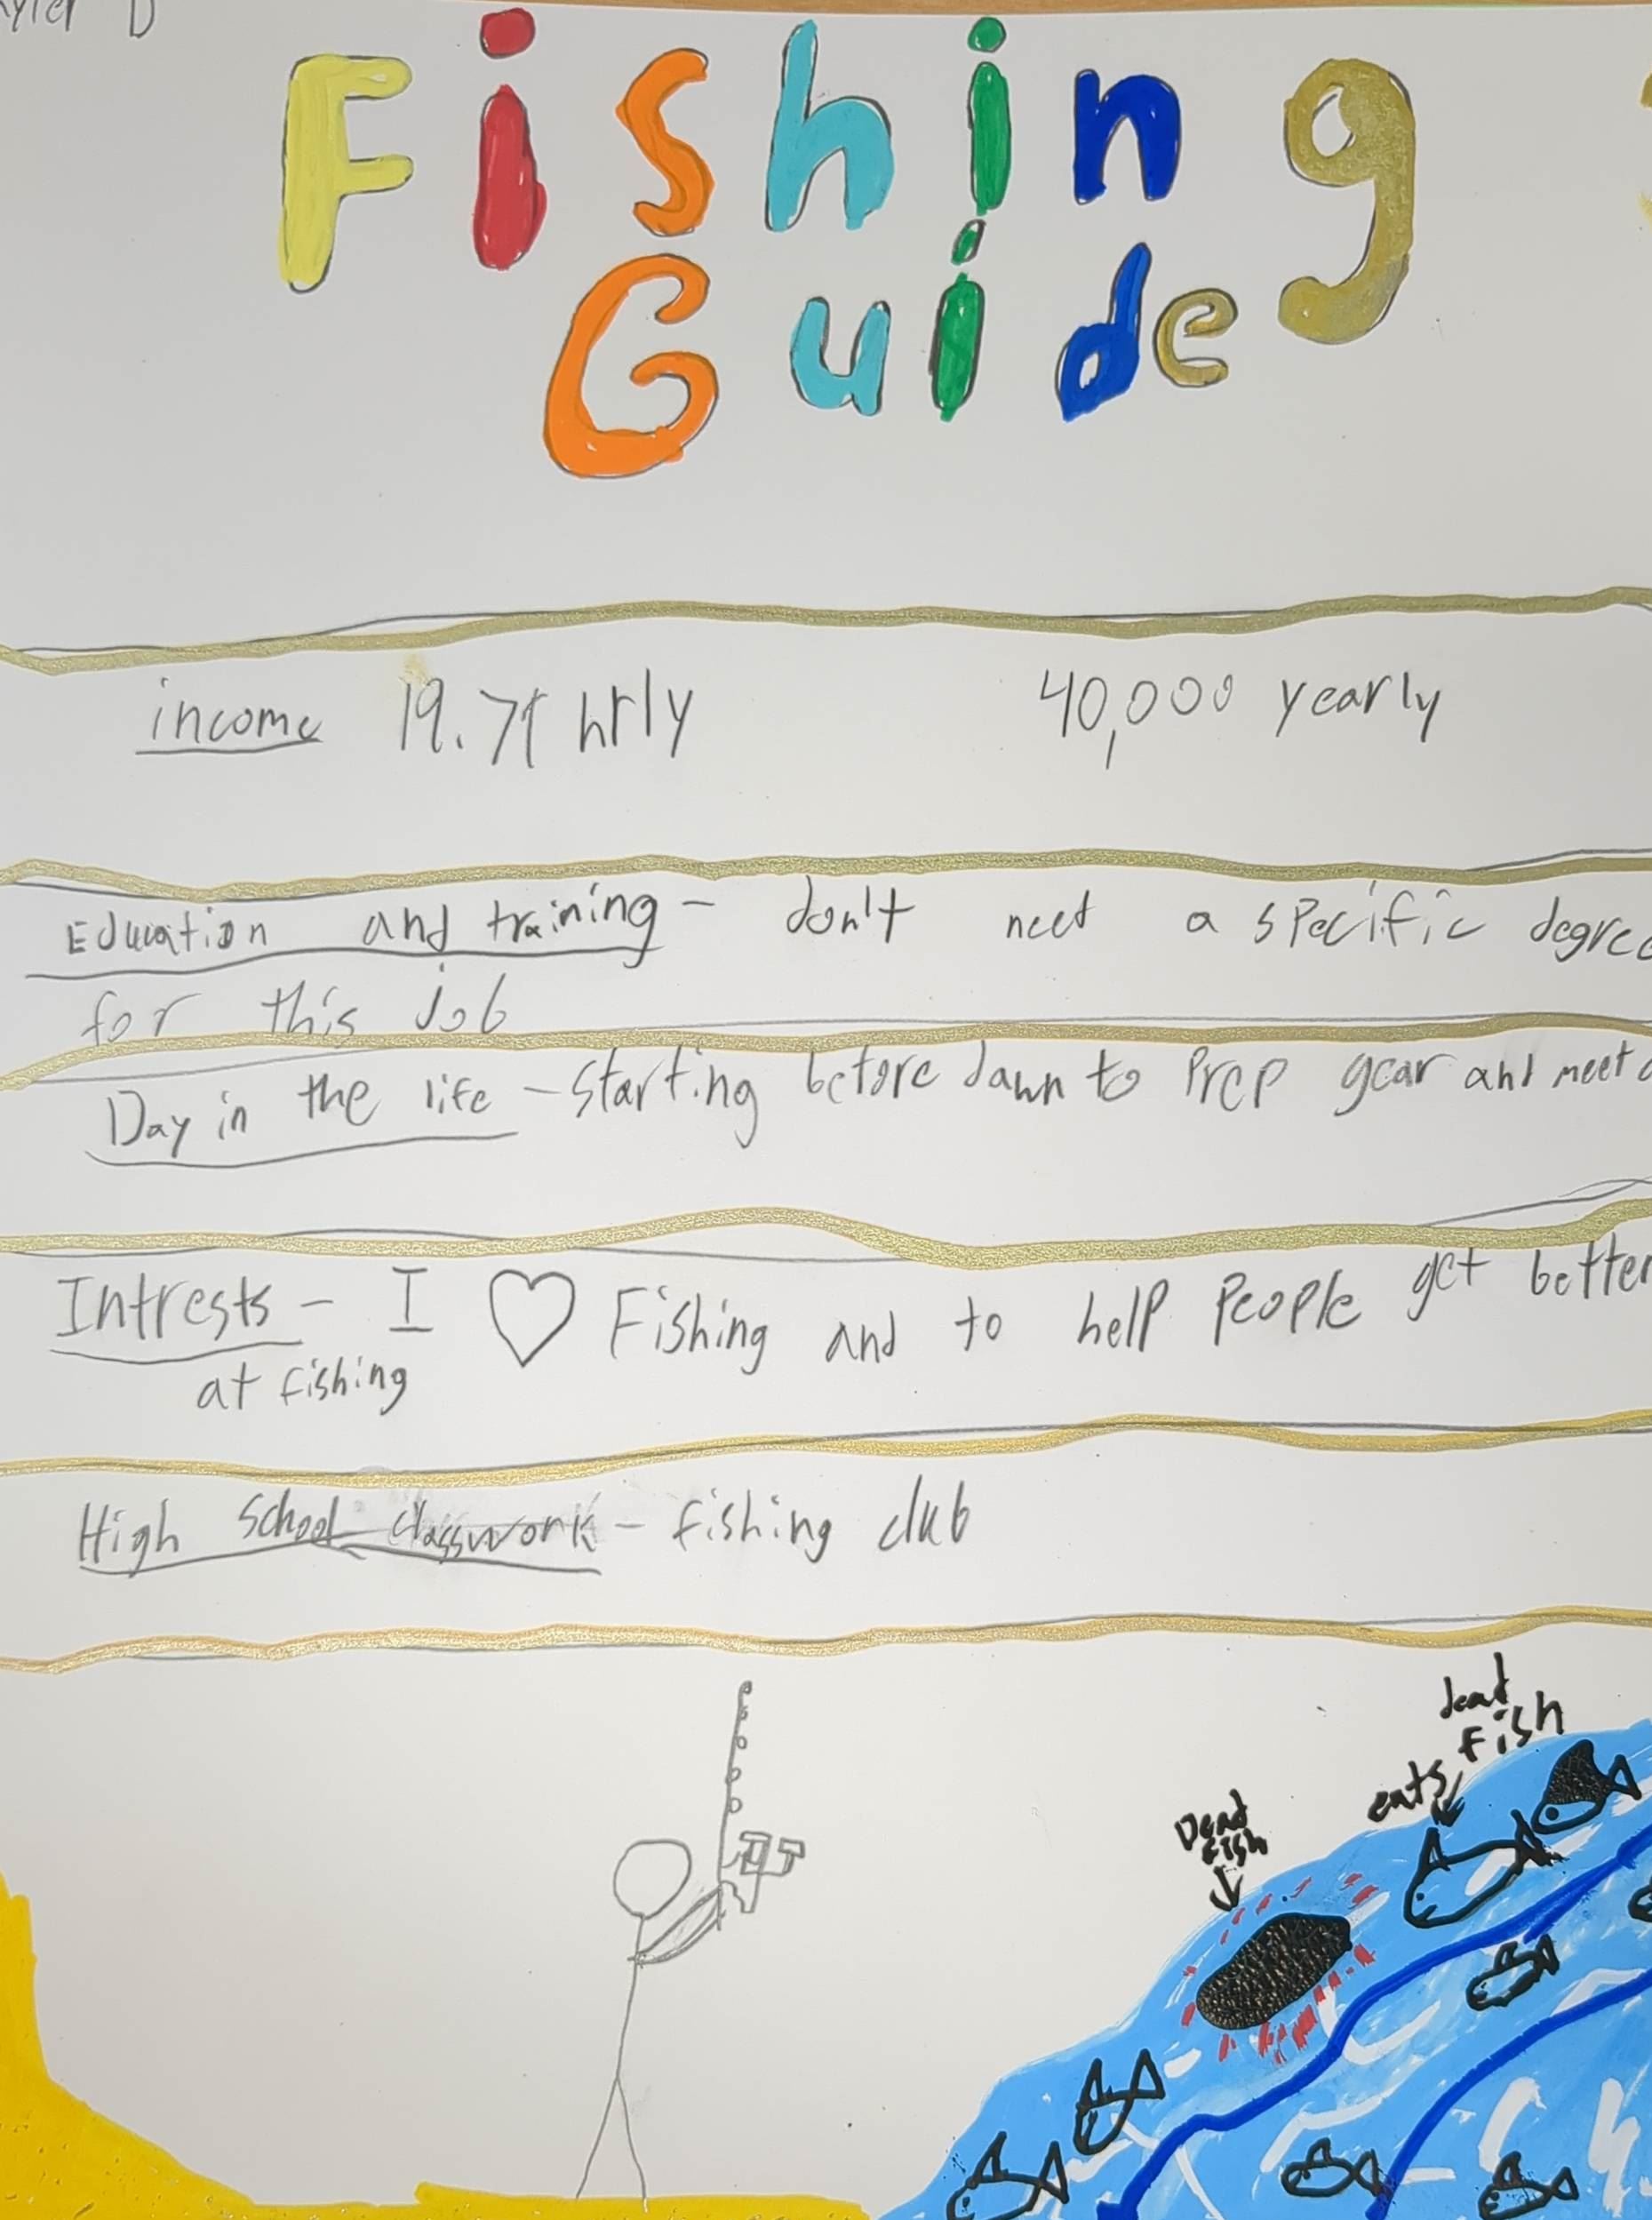 D
Fishing
Guide
income 19.71 hrly 40,000 yearly
Education and training - don't need a specific degree
for this job
Day in the life - starting before dawn to Prep gear and meet
Intrests - I ♡ Fishing and to help People get better
at fishing
High School classwork - fishing club
dead
fish
eats
Dead
fish